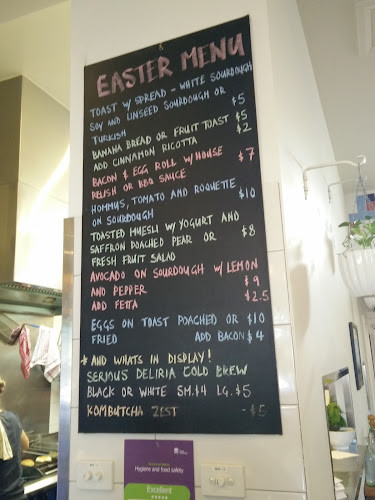 EASTER MENU
TOAST W/ SPREAD - WHITE SOURDOUGH
SOY AND LINSEED SOURDOUGH OR
TURKISH $5
BANANA BREAD OR FRUIT TOAST $5
ADD CINNAMON RICOTTA $2
BACON & EGG ROLL W/ HOUSE
RELISH OR BBQ SAUCE $7
HOMMUS, TOMATO AND ROQUETTE
ON SOURDOUGH $10
TOASTED MUESLI W/ YOGURT AND
SAFFRON POACHED PEAR OR $8
FRESH FRUIT SALAD
AVOCADO ON SOURDOUGH W/ LEMON
AND PEPPER $9
ADD FETTA $2.5
EGGS ON TOAST POACHED OR $10
FRIED ADD BACON $4
* AND WHATS IN DISPLAY!
SERIOUS DELIRIA COLD BREW
BLACK OR WHITE SM.$4 LG.$5
KOMBUTCHA ZEST - $5
Hygiene and food safety
Excellent